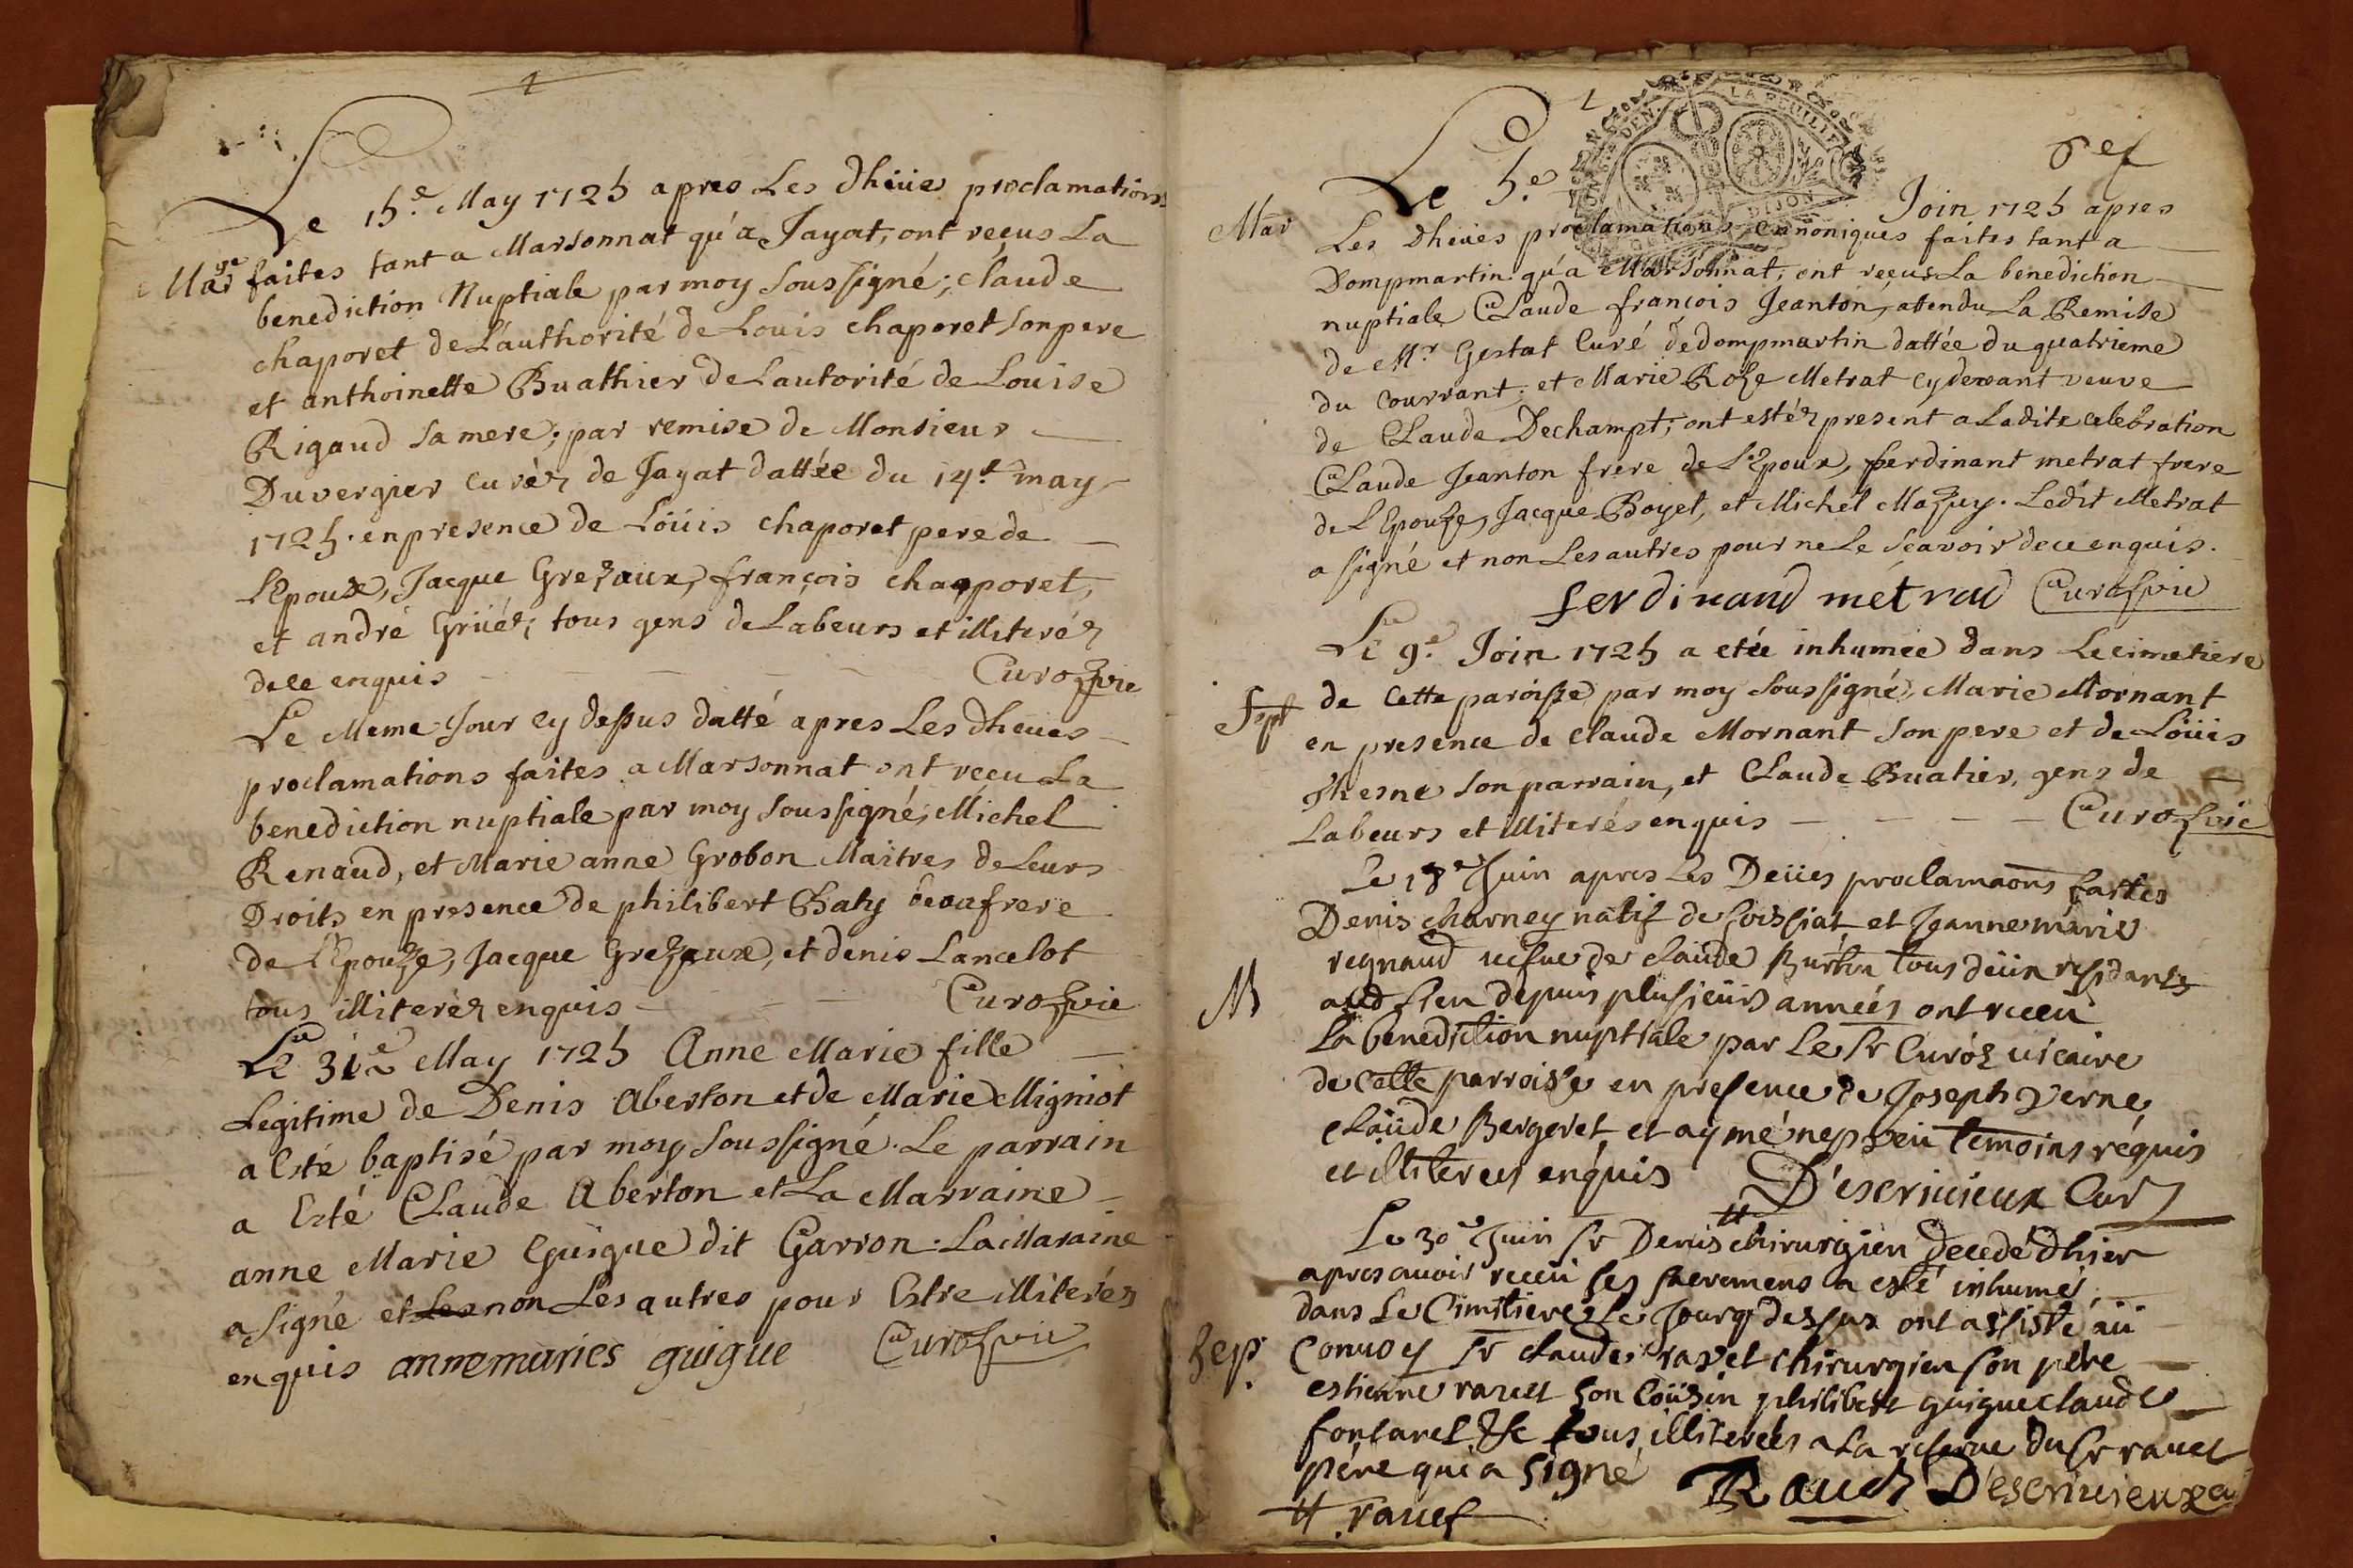 1
Le 15.e May 1725 apres Les Dhüues proclamations
Marge faites tant a Marsonnat qu'a Jayat, ont reçus La
benediction Nuptiale par moy Soussigné; Claude
chaporet de L'authorité de Louis chaporet son pere
et anthoinette Buathier de Lautorité de Louise
Rigaud sa mere; par remise de Monsieur
Duvergier curéz de Jayat dattée du 14.e may
1725. en presence de Loüis chaporet pere de
L'Epoux, Jacque Grezaux, françois chapporet,
et andré Grüéz, tous gens de Labeurs et illiteréz
de ce enquis Curoz vic
Le Meme Jour cy dessus datté apres Les Dheües
proclamations faites a Marsonnat ont reçu La
benediction nuptiale par moy Soussigné, Michel
Renaud, et Marie anne Grobon Maitres de Leurs
Droits en presence de philibert Baty beaufrere
de L'Epouze, Jacque Grezaux, et denis Lancelot
tous illiteréz enquis Curoz vic
Le 31e May 1725 Anne Marie fille
Legitime de Denis Aberton et de Marie Migniot
a Eté baptisé par moy Soussigné. Le parrain
a Esté Claude Aberton et La Marraine
anne Marie Guigue dit Garron. La Maraine
a Signé et Les non Les autres pour Estre illiterés
enquis annemaries guigue Curoz vic
LA FEUILLE
DIJON
Le 5.e Join 1725 apres
Mar Les Dheües proclamations canoniques faites tant a
Dompmartin qu'a Marsonnat; ont reçus La benediction
nuptiale Claude françois Jeanton, attendu La Remise
de Mr Gestat Curé de dompmartin dattée du quatrieme
du courrant; et Marie Roze Metrat cy devant veuve
de Claude Dechampt; ont estéz present a Ladite celebration
Claude Jeanton frere de L'Epoux, ferdinant metrat frere
de L'Epouze, Jacque Boyet, et Michel Mazuy. Ledit Metrat
a signé et non Les autres pour ne Le Sçavoir de ce enquis.
ferdinand métrad Curoz vic
Le 9.e Join 1725 a etée inhumée dans Le cimetiere
Sept de cette paroisse par moy Soussigné, Marie Mornant
en presence de Claude Mornant son pere et de Loüis
chesne son parrain, et Claude Buatier, gens de
Labeurs et illiterés enquis Curoz vic
Le 18e Juin apres Les Deües proclamaons faites
Denis charney natif de foissiat et Jeanne marie
regnaud uefue de claude Burtin tous deüx residants
M aud Lieu depuis plusieurs années ont receu
La benediction nuptiale par Le Sr Curóz uicaire
de cette parroisse en presence de Joseph verne,
claude Bergeret et aymé nepveü temoins réquis
et illiterés enquis D'escriuieux Curé
Le 30e Juin Sr Denis # chirurgien decedé d'hier
apres auoir receü les sacremens a esté inhumé
dans Le Cimitiere Le Jour cy dessus ont assisté aü
Sep. Conuoy Sr claude rauet chirurgien son pére
estienne rauet son coüsin philibert guigue claude
fontanel &c tous illiterées a La reserue du Sr rauet
pére qui a signé
# rauet Rauet D'escriuieux cu